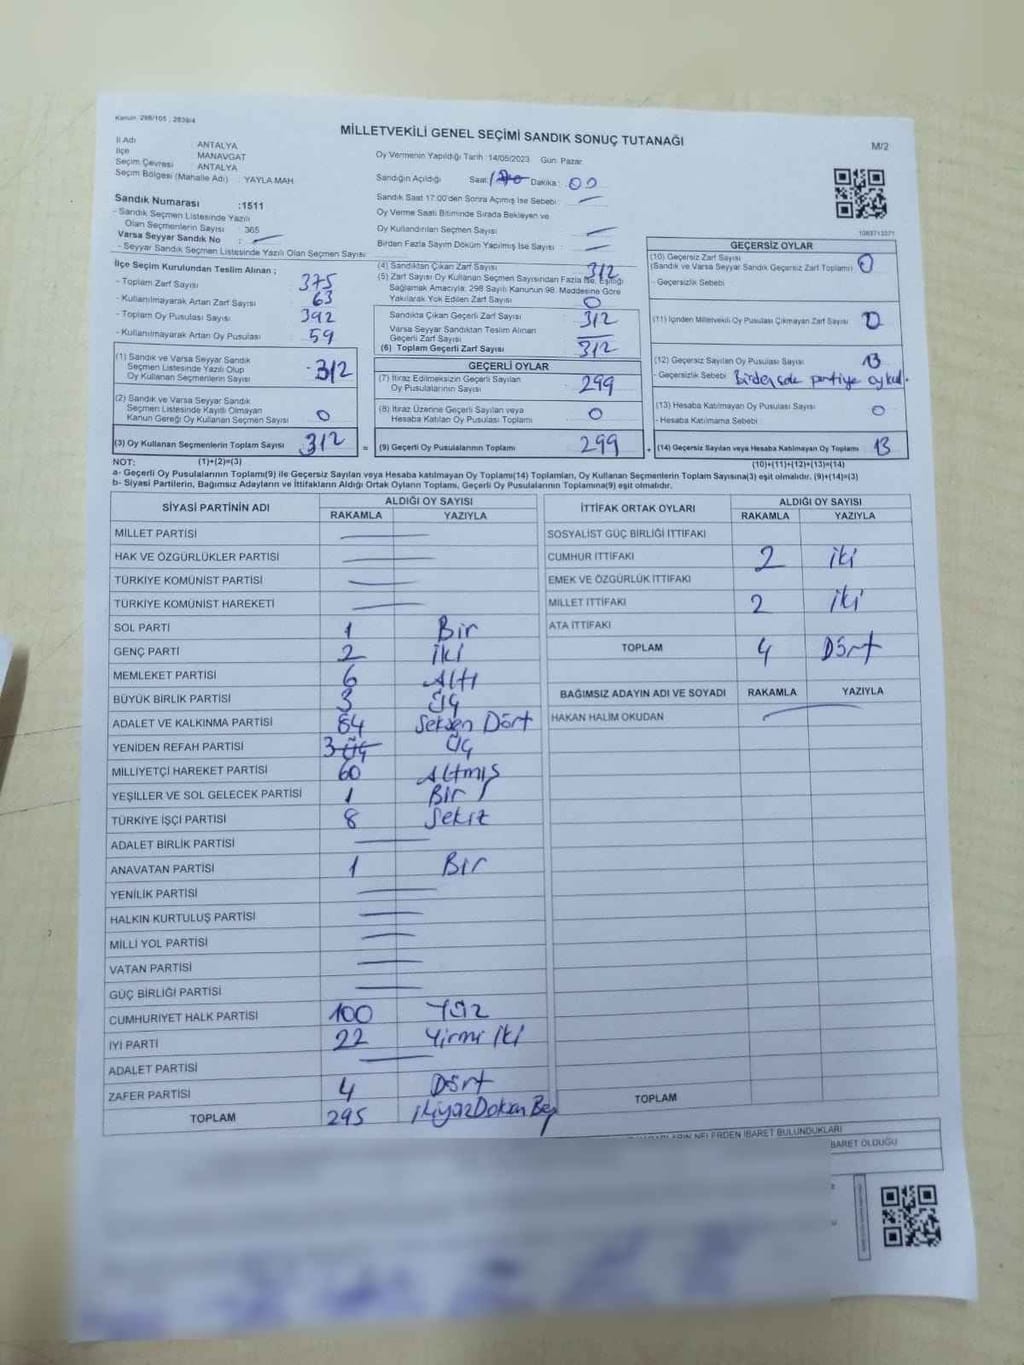 Kanun: 298/105 ; 2839/4
MİLLETVEKİLİ GENEL SEÇİMİ SANDIK SONUÇ TUTANAĞI
M/2
İl Adı ANTALYA
İlçe MANAVGAT
Seçim Çevresi ANTALYA
Seçim Bölgesi (Mahalle Adı) : YAYLA MAH
Oy Vermenin Yapıldığı Tarih : 14/05/2023 Gün: Pazar
Sandığın Açıldığı Saat: Dakika: 00
Sandık Saat 17:00'den Sonra Açılmış İse Sebebi :
Oy Verme Saati Bitiminde Sırada Bekleyen ve
Oy Kullandırılan Seçmen Sayısı :
Birden Fazla Sayım Döküm Yapılmış İse Sayısı :
Sandık Numarası :1511
- Sandık Seçmen Listesinde Yazılı
Olan Seçmenlerin Sayısı : 365
Varsa Seyyar Sandık No :
- Seyyar Sandık Seçmen Listesinde Yazılı Olan Seçmen Sayısı
1083713371
İlçe Seçim Kurulundan Teslim Alınan ;
- Toplam Zarf Sayısı 375
- Kullanılmayarak Artan Zarf Sayısı 63
- Toplam Oy Pusulası Sayısı 392
- Kullanılmayarak Artan Oy Pusulası 59
(1) Sandık ve Varsa Seyyar Sandık
Seçmen Listesinde Yazılı Olup
Oy Kullanan Seçmenlerin Sayısı 312
(2) Sandık ve Varsa Seyyar Sandık
Seçmen Listesinde Kayıtlı Olmayan
Kanun Gereği Oy Kullanan Seçmen Sayısı 0
(3) Oy Kullanan Seçmenlerin Toplam Sayısı 312
(4) Sandıktan Çıkan Zarf Sayısı 312
(5) Zarf Sayısı Oy Kullanan Seçmen Sayısından Fazla İse, Eşitliği
Sağlamak Amacıyla, 298 Sayılı Kanunun 98. Maddesine Göre
Yakılarak Yok Edilen Zarf Sayısı 0
Sandıkta Çıkan Geçerli Zarf Sayısı 312
Varsa Seyyar Sandıktan Teslim Alınan
Geçerli Zarf Sayısı
(6) Toplam Geçerli Zarf Sayısı 312
GEÇERLİ OYLAR
(7) İtiraz Edilmeksizin Geçerli Sayılan
Oy Pusulalarının Sayısı 299
(8) İtiraz Üzerine Geçerli Sayılan veya
Hesaba Katılan Oy Pusulası Toplamı 0
= (9) Geçerli Oy Pusulalarının Toplamı 299
GEÇERSİZ OYLAR
(10) Geçersiz Zarf Sayısı
(Sandık ve Varsa Seyyar Sandık Geçersiz Zarf Toplamı) 0
- Geçersizlik Sebebi
(11) İçinden Milletvekili Oy Pusulası Çıkmayan Zarf Sayısı 0
(12) Geçersiz Sayılan Oy Pusulası Sayısı 13
- Geçersizlik Sebebi Birden çok partiye oy kul.
(13) Hesaba Katılmayan Oy Pusulası Sayısı 0
- Hesaba Katılmama Sebebi
+ (14) Geçersiz Sayılan veya Hesaba Katılmayan Oy Toplamı 13
NOT: (1)+(2)=(3) (10)+(11)+(12)+(13)=(14)
a- Geçerli Oy Pusulalarının Toplamı(9) ile Geçersiz Sayılan veya Hesaba katılmayan Oy Toplamı(14) Toplamları, Oy Kullanan Seçmenlerin Toplam Sayısına(3) eşit olmalıdır. (9)+(14)=(3)
b- Siyasi Partilerin, Bağımsız Adayların ve İttifakların Aldığı Ortak Oyların Toplamı, Geçerli Oy Pusulalarının Toplamına(9) eşit olmalıdır.
SİYASİ PARTİNİN ADI ALDIĞI OY SAYISI
RAKAMLA YAZIYLA
MİLLET PARTİSİ
HAK VE ÖZGÜRLÜKLER PARTİSİ
TÜRKİYE KOMÜNİST PARTİSİ
TÜRKİYE KOMÜNİST HAREKETİ
SOL PARTİ 1 Bir
GENÇ PARTİ 2 İki
MEMLEKET PARTİSİ 6 Altı
BÜYÜK BİRLİK PARTİSİ 3 Üç
ADALET VE KALKINMA PARTİSİ 84 Seksen Dört
YENİDEN REFAH PARTİSİ 3 Üç Üç
MİLLİYETÇİ HAREKET PARTİSİ 60 Altmış
YEŞİLLER VE SOL GELECEK PARTİSİ 1 Bir
TÜRKİYE İŞÇİ PARTİSİ 8 Sekiz
ADALET BİRLİK PARTİSİ
ANAVATAN PARTİSİ 1 Bir
YENİLİK PARTİSİ
HALKIN KURTULUŞ PARTİSİ
MİLLİ YOL PARTİSİ
VATAN PARTİSİ
GÜÇ BİRLİĞİ PARTİSİ
CUMHURİYET HALK PARTİSİ 100 Yüz
İYİ PARTİ 22 Yirmi İki
ADALET PARTİSİ
ZAFER PARTİSİ 4 Dört
TOPLAM 295 İkiyüzDoksan Beş
İTTİFAK ORTAK OYLARI ALDIĞI OY SAYISI
RAKAMLA YAZIYLA
SOSYALİST GÜÇ BİRLİĞİ İTTİFAKI
CUMHUR İTTİFAKI 2 iki
EMEK VE ÖZGÜRLÜK İTTİFAKI
MİLLET İTTİFAKI 2 iki
ATA İTTİFAKI
TOPLAM 4 Dört
BAĞIMSIZ ADAYIN ADI VE SOYADI RAKAMLA YAZIYLA
HAKAN HALİM OKUDAN
TOPLAM
NELERDEN İBARET BULUNDUKLARI
İBARET OLDUĞU